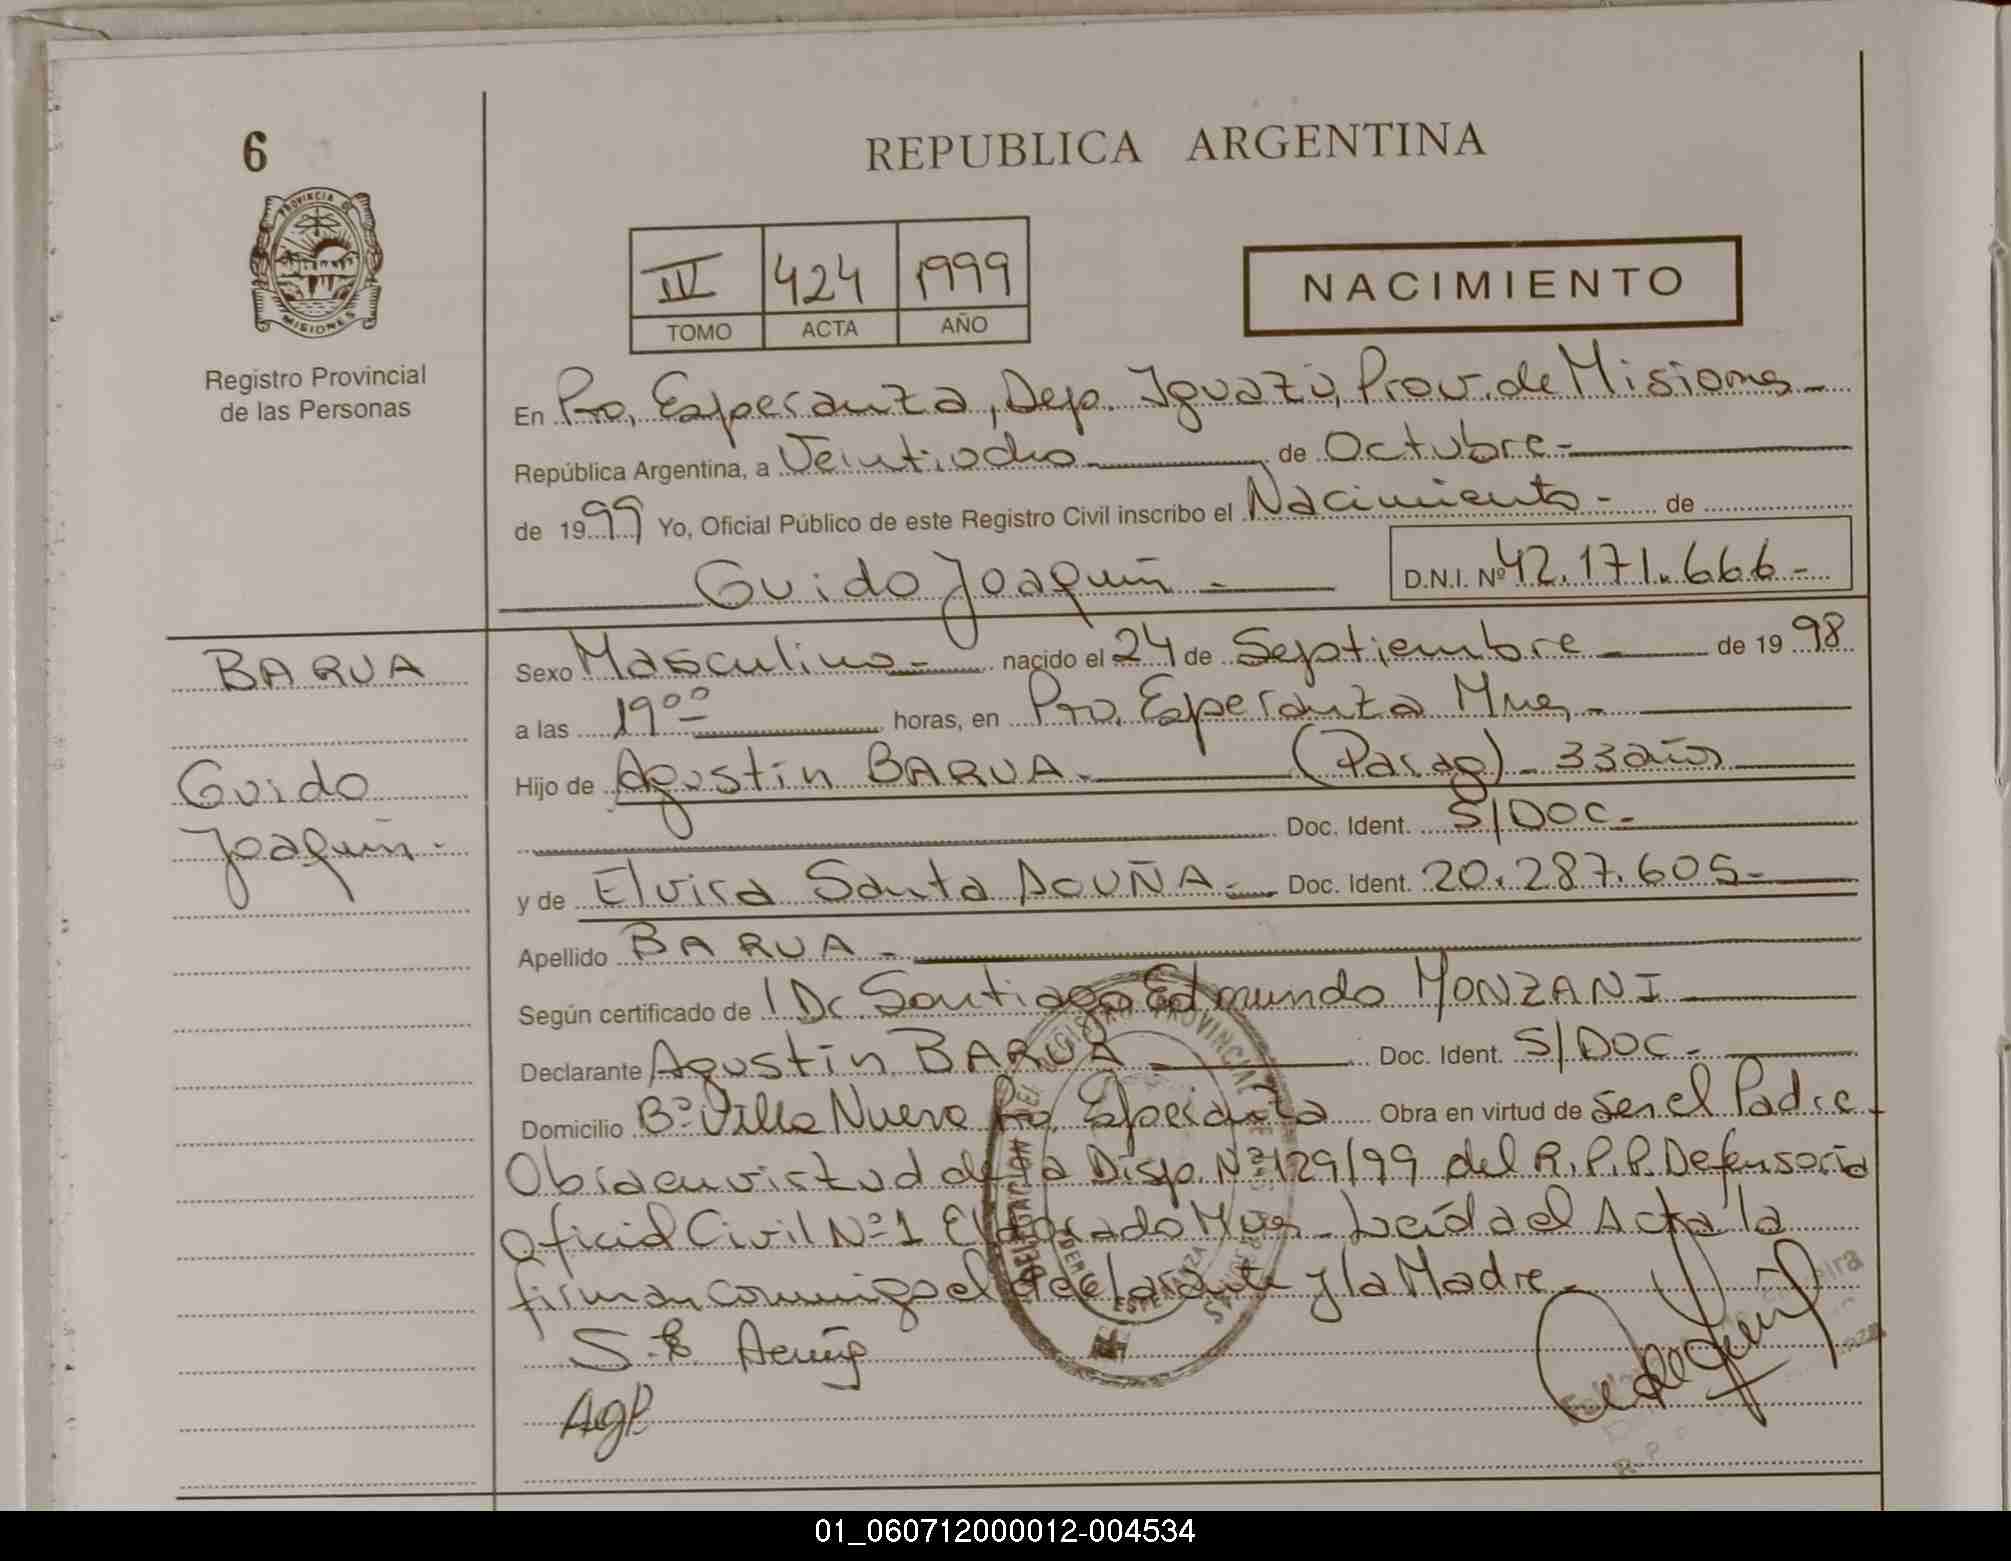 6
REPUBLICA ARGENTINA
PROVINCIA DE
MISIONES
III 424 1999
TOMO ACTA AÑO
NACIMIENTO
Registro Provincial
de las Personas
En Pto. Esperanza, Dep. Iguazú, Prov. de Misiones -
República Argentina, a Veintiocho de Octubre -
de 1999 Yo, Oficial Público de este Registro Civil inscribo el Nacimiento - de
Guido Joaquín - D.N.I. Nº 42.171.666 -
BARUA
Guido
Joaquín -
Sexo Masculino - nacido el 24 de Septiembre de 1998
a las 19°° horas, en Pto. Esperanza Mnes -
Hijo de Agustín BARUA - (Parag) - 33 años
Doc. Ident. S/DOC -
y de Elvira Santa ACUÑA - Doc. Ident. 20.287.605 -
Apellido BARUA -
Según certificado de Dr. Santiago Edmundo MONZANI
Declarante Agustín BARUA Doc. Ident. S/DOC -
Domicilio Bº Villa Nueva Pto. Esperanza Obra en virtud de ser el Padre
Obra en virtud de la Disp. Nº 129/99 del R.P.P. Defensoria
Oficial Civil Nº 1 Eldorado Mnes - Leída el Acta la
firman conmigo el declarante y la Madre -
DELEGACION DEL REGISTRO PROVINCIAL DE LAS PERSONAS
ESPERANZA
S.E. Acuña
AgB
01_060712000012-004534